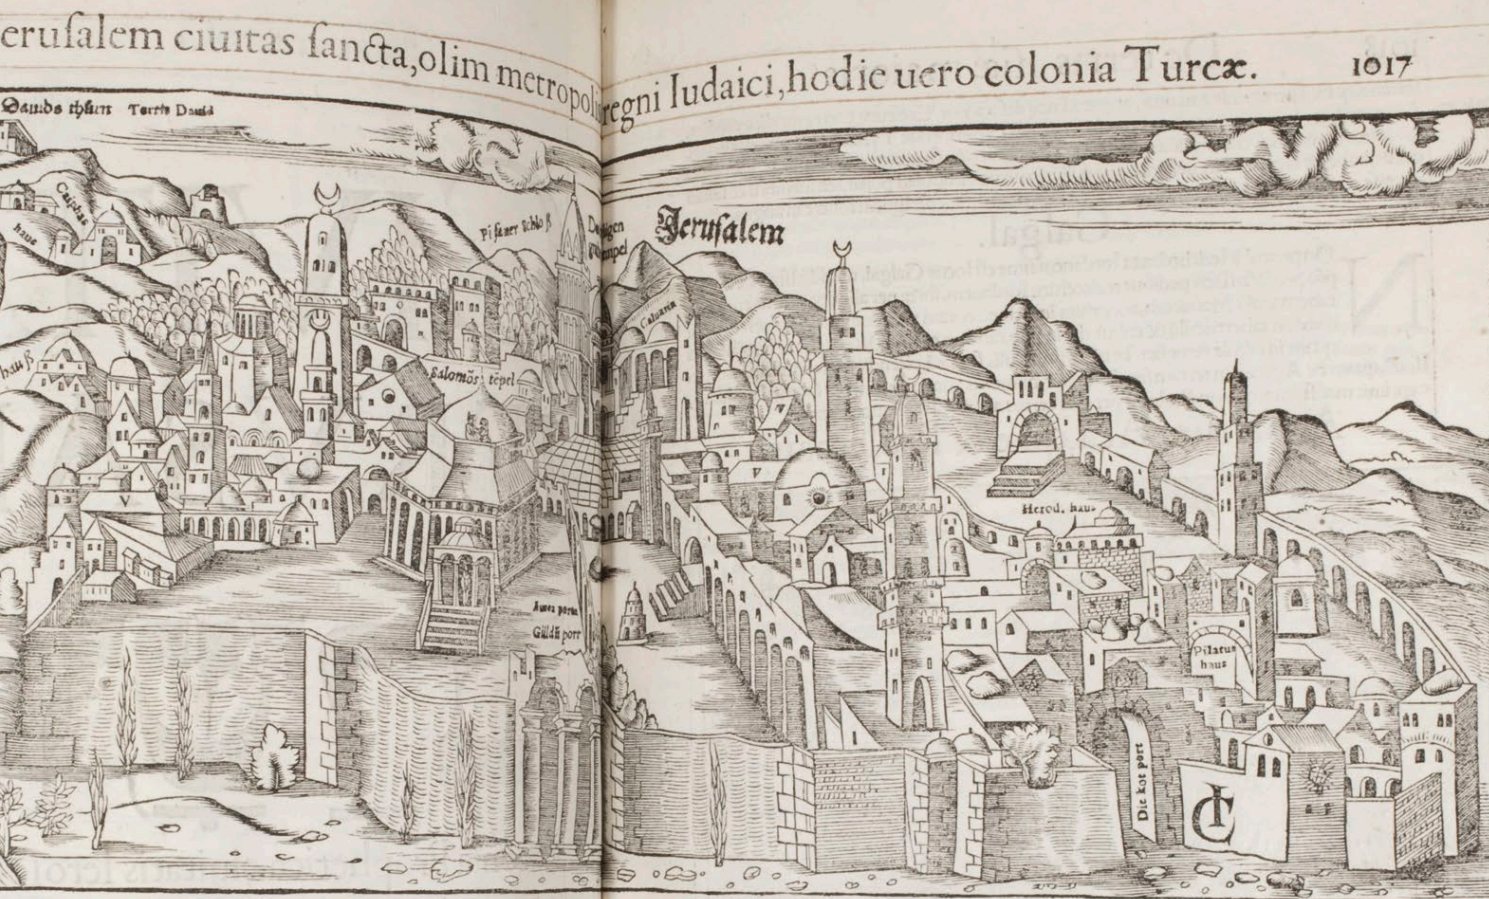 eruſalem ciuitas ſancta, olim metropoli regni Iudaici, hodie uero colonia Turcæ. 1017
Dauids thurn Turris Dauid
Caiphas
haus
Piſaner Schloß
Jeruſalem
Caluarie
hauß
Salomōs tēpel
V
V
V
Herod. haus
Aurea porta
Guldē port
Pilatus
haus
Die kot port